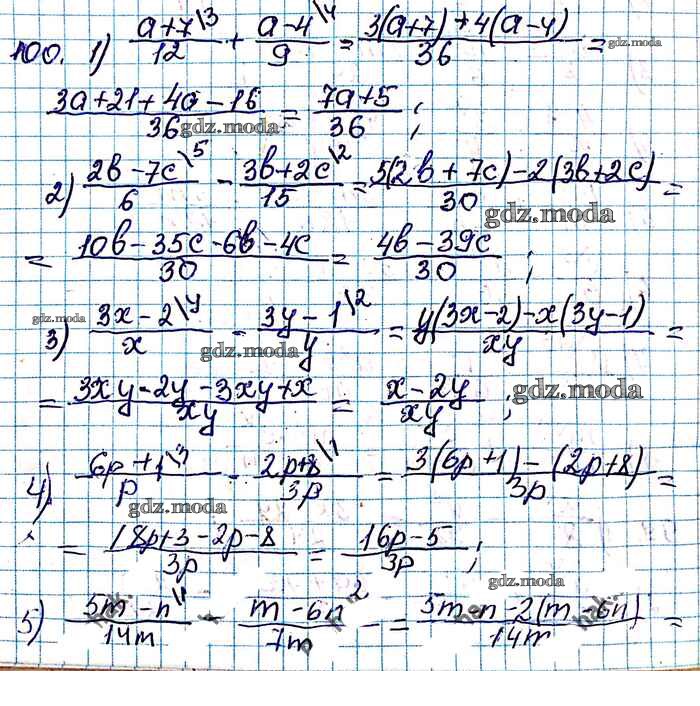 100. 1) \frac{a+7^{\backslash 3}}{12} + \frac{a-4^{\backslash 4}}{9} = \frac{3(a+7)+4(a-4)}{36} =
gdz.moda
\frac{3a+21+4a-16}{36} = \frac{7a+5}{36};
gdz.moda
2) \frac{2b-7c^{\backslash 5}}{6} - \frac{3b+2c^{\backslash 2}}{15} = \frac{5(2b+7c)-2(3b+2c)}{30} =
gdz.moda
= \frac{10b-35c-6b-4c}{30} = \frac{4b-39c}{30};
gdz.moda
3) \frac{3x-2^{\backslash y}}{x} - \frac{3y-1^{\backslash 2}}{y} = \frac{y(3x-2)-x(3y-1)}{xy} =
gdz.moda
= \frac{3xy-2y-3xy+x}{xy} = \frac{x-2y}{xy};
gdz.moda
4) \frac{6p+1^{\backslash 3}}{p} - \frac{2p+8^{\backslash 1}}{3p} = \frac{3(6p+1)-(2p+8)}{3p} =
gdz.moda
= \frac{18p+3-2p-8}{3p} = \frac{16p-5}{3p};
gdz.moda
5) \frac{5m-n^{\backslash 1}}{14m} - \frac{m-6n^{2}}{7m} = \frac{5m-n-2(m-6n)}{14m} =
gdz.moda